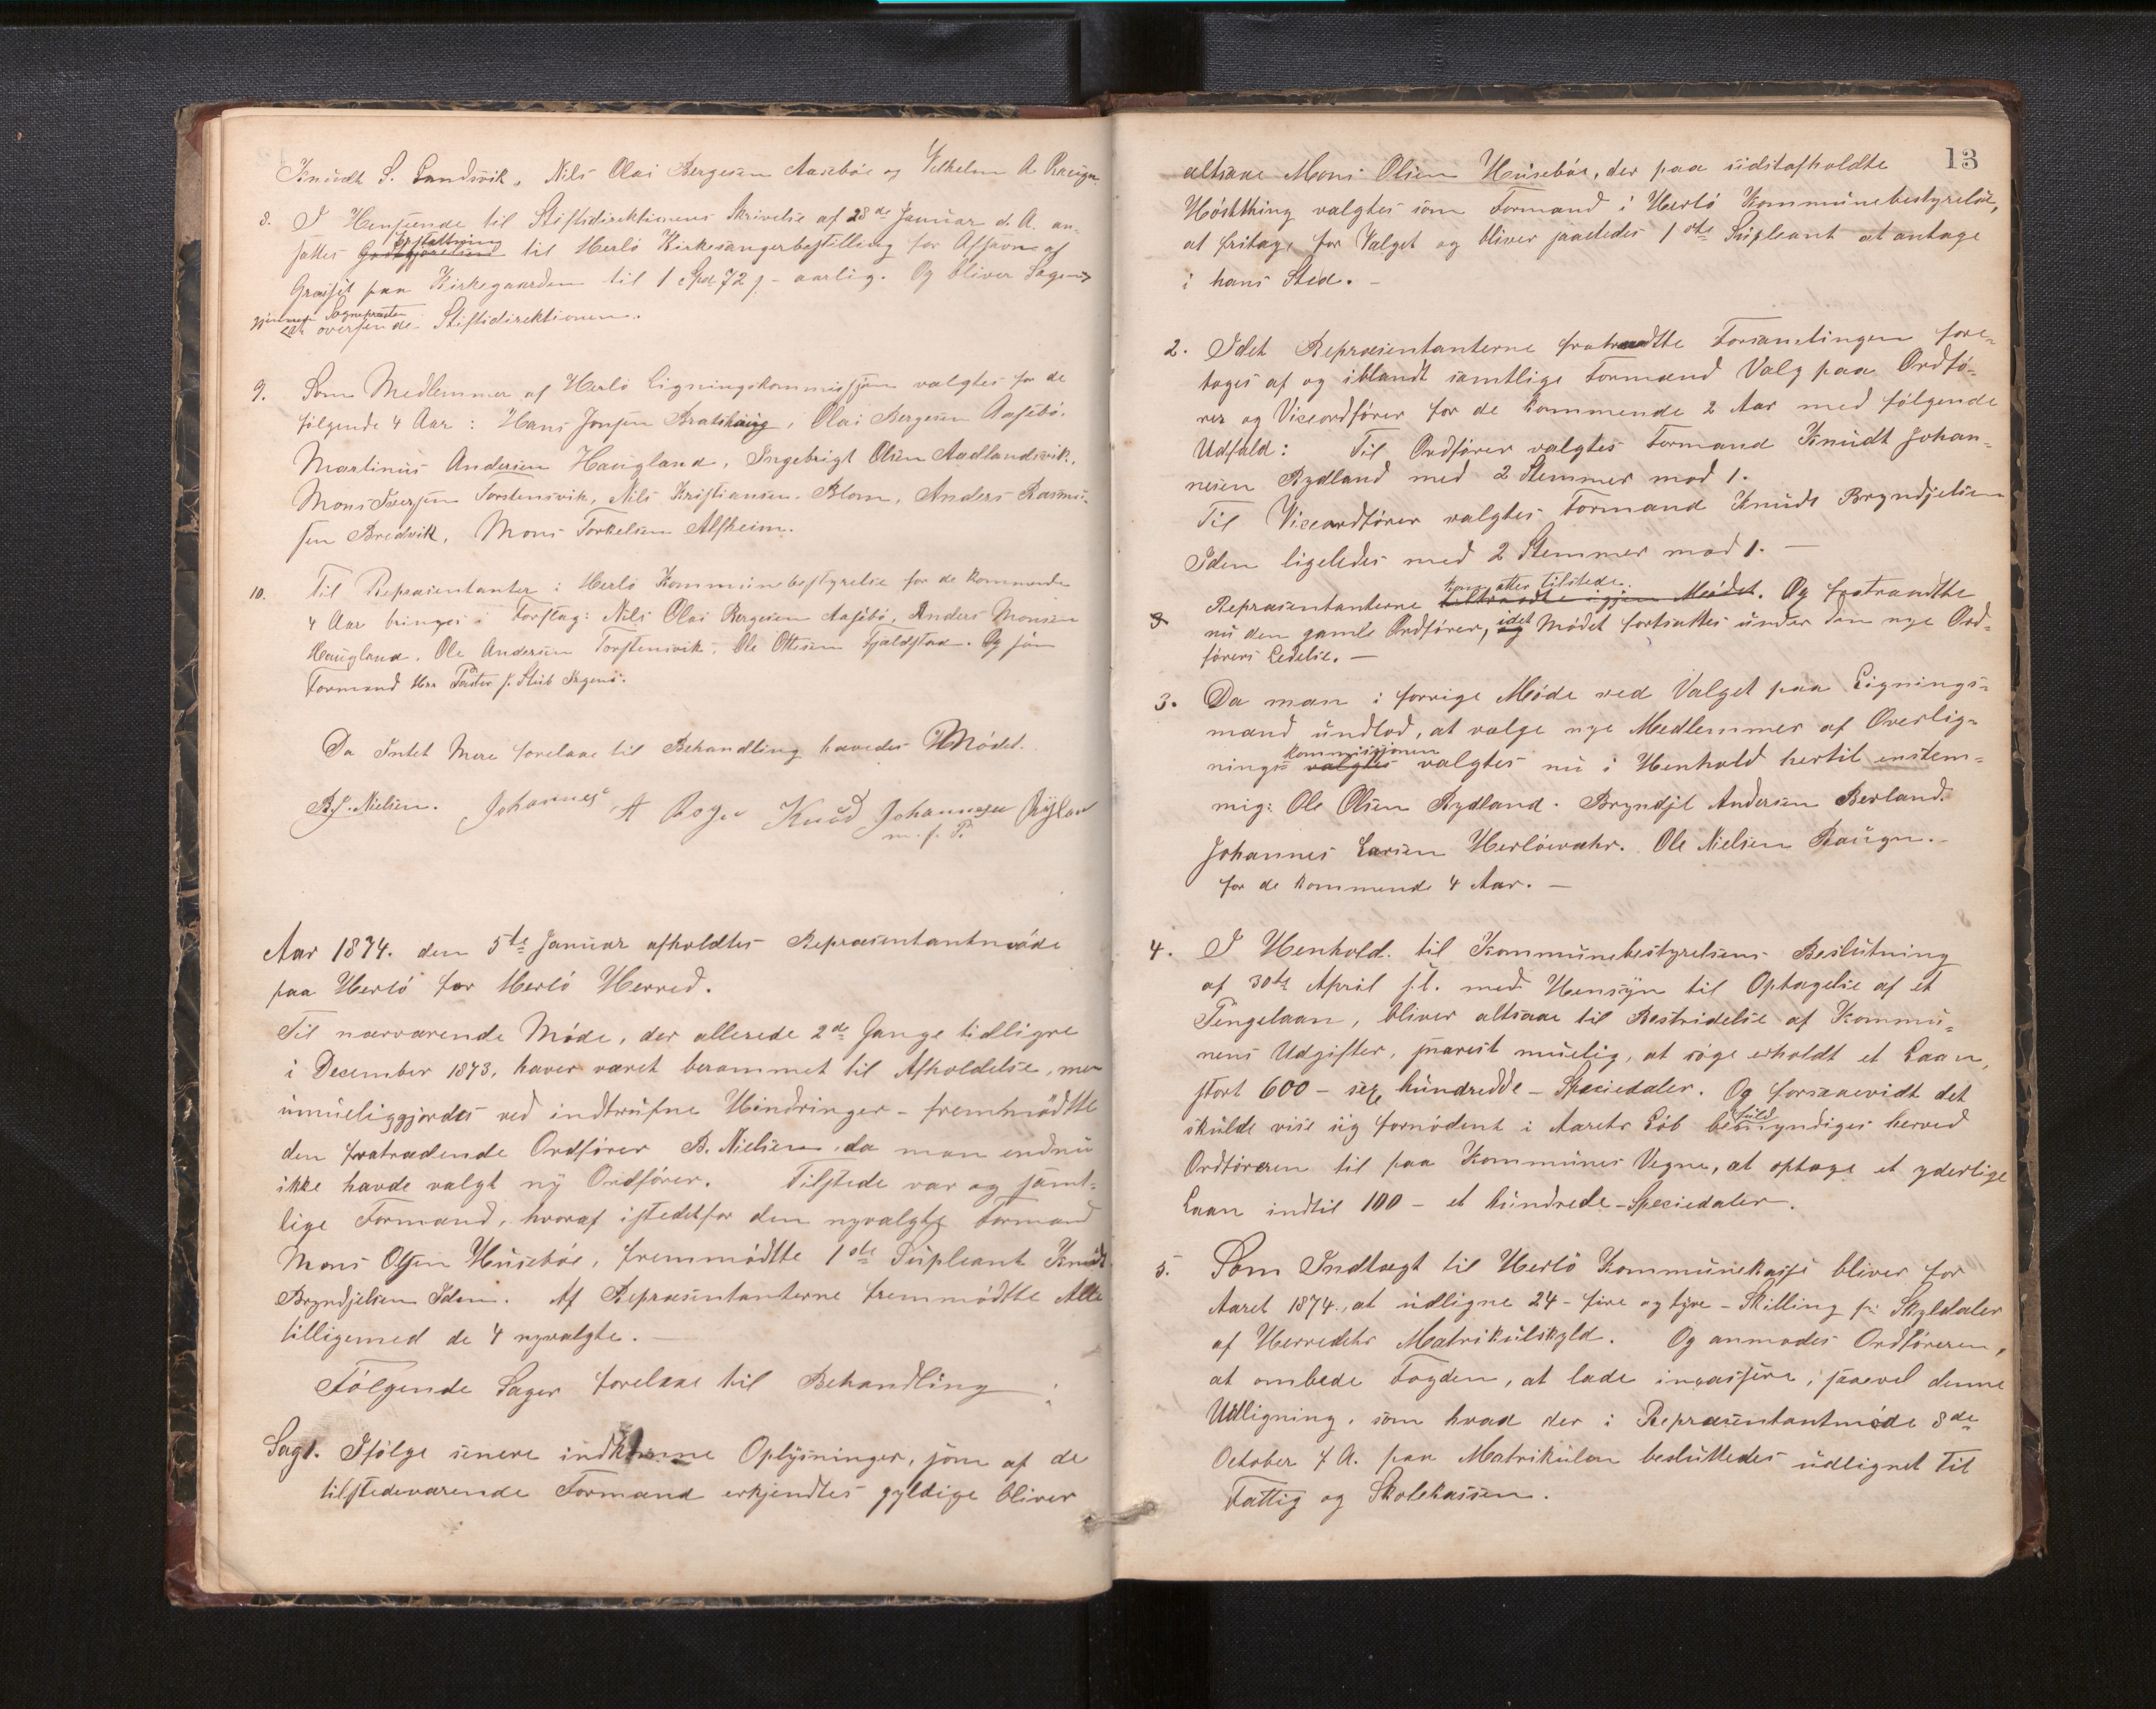 Knudt S. Landsvik, Nils Olai Bergesen Aasebøe og Vilhelm A Raugn.
8. I Henseende til Stiftsdirektionens Skrivelse af 28de Januar d. A. an-
sattes Godtgjørelsen Erstattning til Herlö Kirkesangerbestilling for Afsavn af
Græsset paa Kirkegaarden til 1 Spd 72 s. aarlig. Og bliver Sagen
gjennem Sognepræsten
at oversende Stiftsdirektionen.
9. Som Medlemmer af Herlö Ligningskommissjon valgtes for de
følgende 4 Aar: Hans Jonsen Bratshaug, Olai Bergesen Aasebö.
Martinus Andersen Haugland, Ingebrigt Olsen Aadlandsvik.
Mons Iversen Torstensvik, Nils Kristiansen Blom, Anders Rasmu-
sen Bredvik, Mons Torkelsen Alfheim.
10. Til Repræsentanter i Herlö Kommunebestyrelse for de kommende
4 Aar bringes i Forslag: Nils Olai Bergesen Aasebö, Anders Monsen
Haugland. Ole Andersen Torstensvik, Ole Ottesen Fjeldstad. Og som
Formand Herr Pastor J. Stub Irgens.
Da Intet Mere forelaae til Behandling hævedes Mödet.
B. J. Nielsen. Johannes A Rogn Knud Johannesen Rylan
m. f. P.
Aar 1874. den 5te Januar afholdtes Repræsentantmöde
paa Herlö for Herlö Herred.
Til nærværende Möde, der allerede 2de Gange tidligre
i December 1873, haver været berammet til Afholdelse, men
umueliggjordes ved indtrufne Hindringer - fremmödtte
den fratrædende Ordförer B. Nielsen, da man endnu
ikke havde valgt ny Ordförer. Tilstede var og samt-
lige Formænd, hvoraf istedetfor den nyvalgte Formand
Mons Olsen Husebøe, fremmödtte 1ste Supleant Knudt
Bryndjelsen Iden. Af Repræsentanterne fremmödtte Alle
tilligemed de 4 nyvalgte. —
Fölgende Sager forelaae til Behandling :
Sag 1. Ifölge senere indkomne Oplysninger, som af de
tilstedeværende Formænd erkjendtes gyldige bliver
13
altsaae Mons Olsen Husebøe, der paa sidstafholdte
Höstthing valgtes som Formand i Herlö Kommunebestyrelse,
at fritage for Valget og bliver saaledes 1ste Supleant at antage
i hans Sted. -
2. Idet Repræsentanterne fratraadtte Forsamlingen fore-
toges af og iblandt samtlige Formænd Valg paa Ordfö-
rer og Viceordförer for de kommende 2 Aar med fölgende
Udfald: Til Ordförer valgtes Formand Knudt Johan-
nesen Rydland med 2 Stemmer mod 1.
Til Viceordförer valgtes Formand Knudt Bryndjelsen
Iden ligeledes med 2 Stemmer mod 1. —
kom atter tilstede.
Repræsentanterne tiltraadte igjen Mödet. Og fratraadtte
3 nu den gamle Ordförer, og idet Mödet fortsattes under den nye Ord-
förers Ledelse. —
3. Da man i forrige Möde ved Valget paa Lignings-
mænd undlod, at vælge nye Medlemmer af Overlig-
nings- valgtes kommissjonen valgtes nu i Henhold hertil enstem-
mig: Ole Olsen Rydland. Bryndjel Andersen Berland.
Johannes Larsen Herlöevær. Ole Nielsen Raugn. -
for de kommende 4 Aar. —
4. I Henhold til Kommunebestyrelsens Beslutning
af 30te April f. A. med Hensyn til Optagelse af et
Pengelaan, bliver altsaae til Bestridelse af Kommu-
nens Udgifter, snarest muelig, at söge erholdt et Laan,
stort 600 - sex hundredde - Speciedaler. Og forsaavidt det
skulde vise sig fornödent i Aarets Löb befuldmyndiges herved
Ordföreren til paa Kommunes Vegne, at optage et yderlige
Laan indtil 100 - et hundrede - Speciedaler.
5. Som Indtægt til Herlö Kommunekasse bliver for
Aaret 1874., at udligne 24 - fire og tyve - Skilling pr Skylddaler
af Herredets Matrikulskyld. Og anmodes Ordföreren,
at ombede Fogden, at lade incassere, saavel denne
Udligning, som hvad der i Repræsentantmöde 8de
October f. A. paa Matrikulen besluttedes udlignet til
Fattig og Skolekassen.